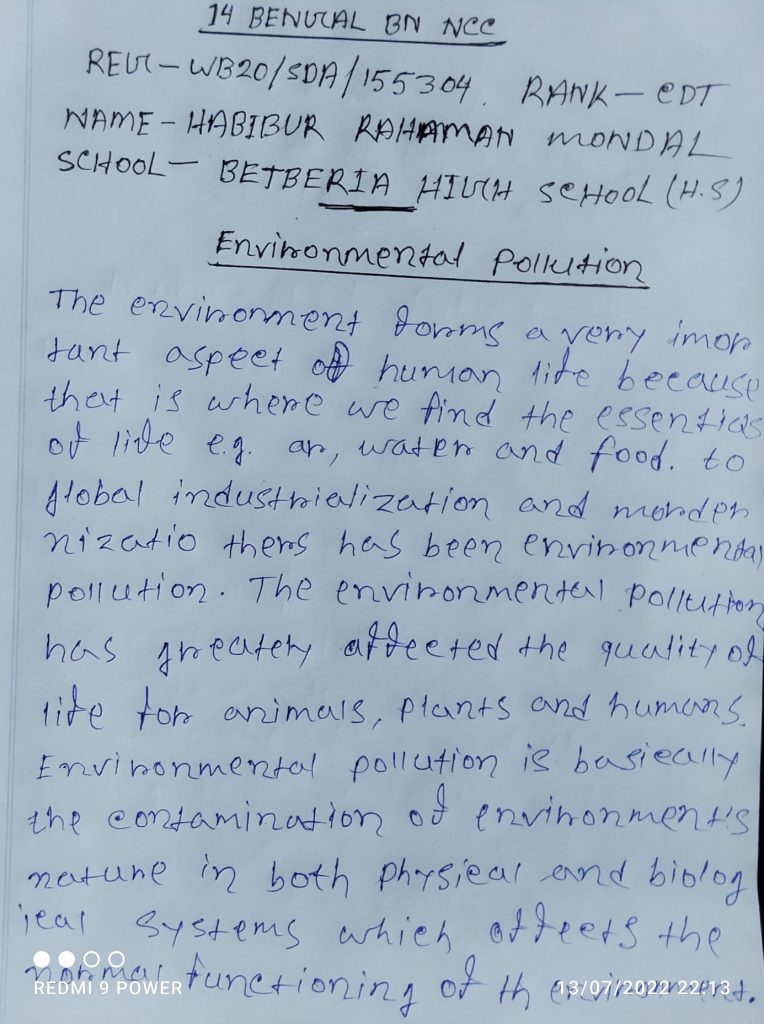 14 BENGAL BN NCC
REG - WB20/SDA/155304. RANK - CDT
NAME - HABIBUR RAHAMAN MONDAL
SCHOOL - BETBERIA HIGH SCHOOL (H.S)
Environmental Pollution
The environment forms a very impor
tant aspect of human life because
that is where we find the essentials
of life e.g. ar, water and food. to
global industrialization and morder
nizatio thers has been environmental
pollution. The environmental pollution
has greately affected the quality of
life for animals, plants and humans.
Environmental pollution is basically
the contamination of environment's
nature in both physical and biolog
ical systems which affects the
normal functioning of th environment.
REDMI 9 POWER 13/07/2022 22:13